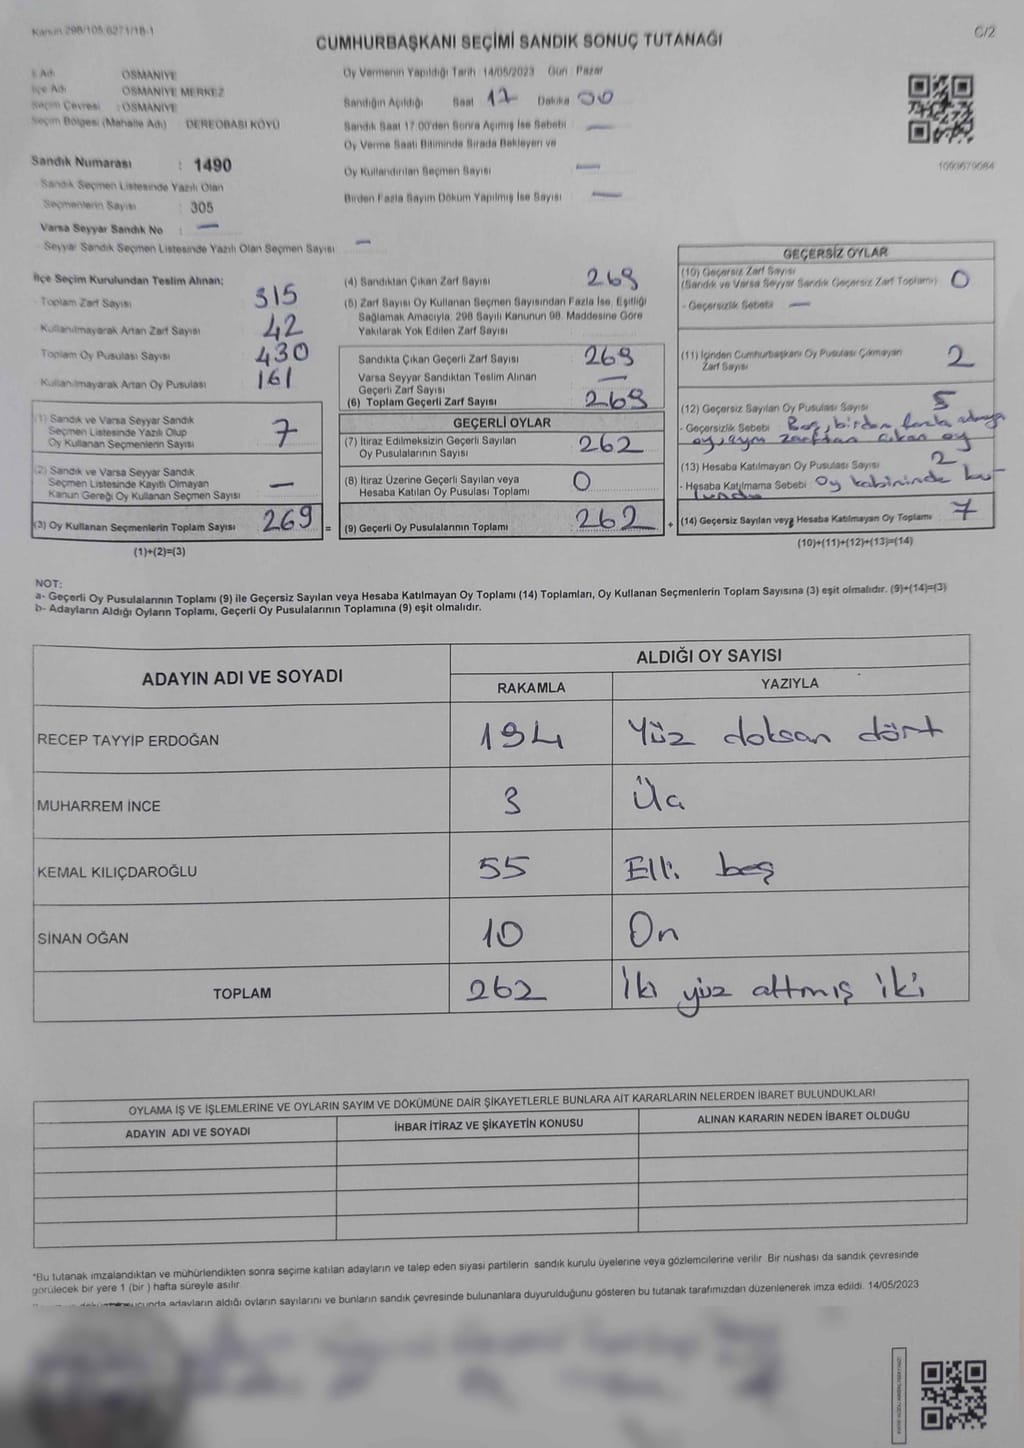 Kanun 298/105,6271/18-1
C/2
CUMHURBAŞKANI SEÇİMİ SANDIK SONUÇ TUTANAĞI
İl Adı OSMANİYE
İlçe Adı OSMANİYE MERKEZ
Seçim Çevresi : OSMANİYE
Seçim Bölgesi (Mahalle Adı) DEREOBASI KÖYÜ
Sandık Numarası : 1490
Sandık Seçmen Listesinde Yazılı Olan
Seçmenlerin Sayısı : 305
Varsa Seyyar Sandık No : —
Seyyar Sandık Seçmen Listesinde Yazılı Olan Seçmen Sayısı —
Oy Vermenin Yapıldığı Tarih : 14/05/2023 Gün : Pazar
Sandığın Açıldığı Saat 17 Dakika 00
Sandık Saat 17:00'den Sonra Açılmış İse Sebebi —
Oy Verme Saati Bitiminde Sırada Bekleyen ve
Oy Kullandırılan Seçmen Sayısı —
Birden Fazla Sayım Döküm Yapılmış İse Sayısı —
1090679084
İlçe Seçim Kurulundan Teslim Alınan;
Toplam Zarf Sayısı 315
Kullanılmayarak Artan Zarf Sayısı 42
Toplam Oy Pusulası Sayısı 430
Kullanılmayarak Artan Oy Pusulası 161
(1) Sandık ve Varsa Seyyar Sandık
Seçmen Listesinde Yazılı Olup
Oy Kullanan Seçmenlerin Sayısı 7
(2) Sandık ve Varsa Seyyar Sandık
Seçmen Listesinde Kayıtlı Olmayan
Kanun Gereği Oy Kullanan Seçmen Sayısı —
(3) Oy Kullanan Seçmenlerin Toplam Sayısı 269 =
(1)+(2)=(3)
(4) Sandıktan Çıkan Zarf Sayısı 269
(5) Zarf Sayısı Oy Kullanan Seçmen Sayısından Fazla İse, Eşitliği
Sağlamak Amacıyla, 298 Sayılı Kanunun 98. Maddesine Göre
Yakılarak Yok Edilen Zarf Sayısı
Sandıkta Çıkan Geçerli Zarf Sayısı 269
Varsa Seyyar Sandıktan Teslim Alınan
Geçerli Zarf Sayısı —
(6) Toplam Geçerli Zarf Sayısı 269
GEÇERLİ OYLAR
(7) İtiraz Edilmeksizin Geçerli Sayılan
Oy Pusulalarının Sayısı 262
(8) İtiraz Üzerine Geçerli Sayılan veya
Hesaba Katılan Oy Pusulası Toplamı 0
(9) Geçerli Oy Pusulalarının Toplamı 262 +
GEÇERSİZ OYLAR
(10) Geçersiz Zarf Sayısı
(Sandık ve Varsa Seyyar Sandık Geçersiz Zarf Toplamı) 0
- Geçersizlik Sebebi —
(11) İçinden Cumhurbaşkanı Oy Pusulası Çıkmayan
Zarf Sayısı 2
(12) Geçersiz Sayılan Oy Pusulası Sayısı 5
- Geçersizlik Sebebi Boş, birden fazla adaya
oy, aynı zarftan çıkan oy
(13) Hesaba Katılmayan Oy Pusulası Sayısı 2
- Hesaba Katılmama Sebebi Oy kabininde bu
lundu
(14) Geçersiz Sayılan veya Hesaba Katılmayan Oy Toplamı 7
(10)+(11)+(12)+(13)=(14)
NOT:
a- Geçerli Oy Pusulalarının Toplamı (9) ile Geçersiz Sayılan veya Hesaba Katılmayan Oy Toplamı (14) Toplamları, Oy Kullanan Seçmenlerin Toplam Sayısına (3) eşit olmalıdır. (9)+(14)=(3)
b- Adayların Aldığı Oyların Toplamı, Geçerli Oy Pusulalarının Toplamına (9) eşit olmalıdır.
ADAYIN ADI VE SOYADI
ALDIĞI OY SAYISI
RAKAMLA YAZIYLA
RECEP TAYYİP ERDOĞAN 194 Yüz doksan dört
MUHARREM İNCE 3 Üç
KEMAL KILIÇDAROĞLU 55 Elli beş
SİNAN OĞAN 10 On
TOPLAM 262 İki yüz altmış iki
OYLAMA İŞ VE İŞLEMLERİNE VE OYLARIN SAYIM VE DÖKÜMÜNE DAİR ŞİKAYETLERLE BUNLARA AİT KARARLARIN NELERDEN İBARET BULUNDUKLARI
ADAYIN ADI VE SOYADI İHBAR İTİRAZ VE ŞİKAYETİN KONUSU ALINAN KARARIN NEDEN İBARET OLDUĞU
*Bu tutanak imzalandıktan ve mühürlendikten sonra seçime katılan adayların ve talep eden siyasi partilerin sandık kurulu üyelerine veya gözlemcilerine verilir. Bir nüshası da sandık çevresinde
görülecek bir yere 1 (bir) hafta süreyle asılır.
adayların aldığı oyların sayılarını ve bunların sandık çevresinde bulunanlara duyurulduğunu gösteren bu tutanak tarafımızdan düzenlenerek imza edildi. 14/05/2023